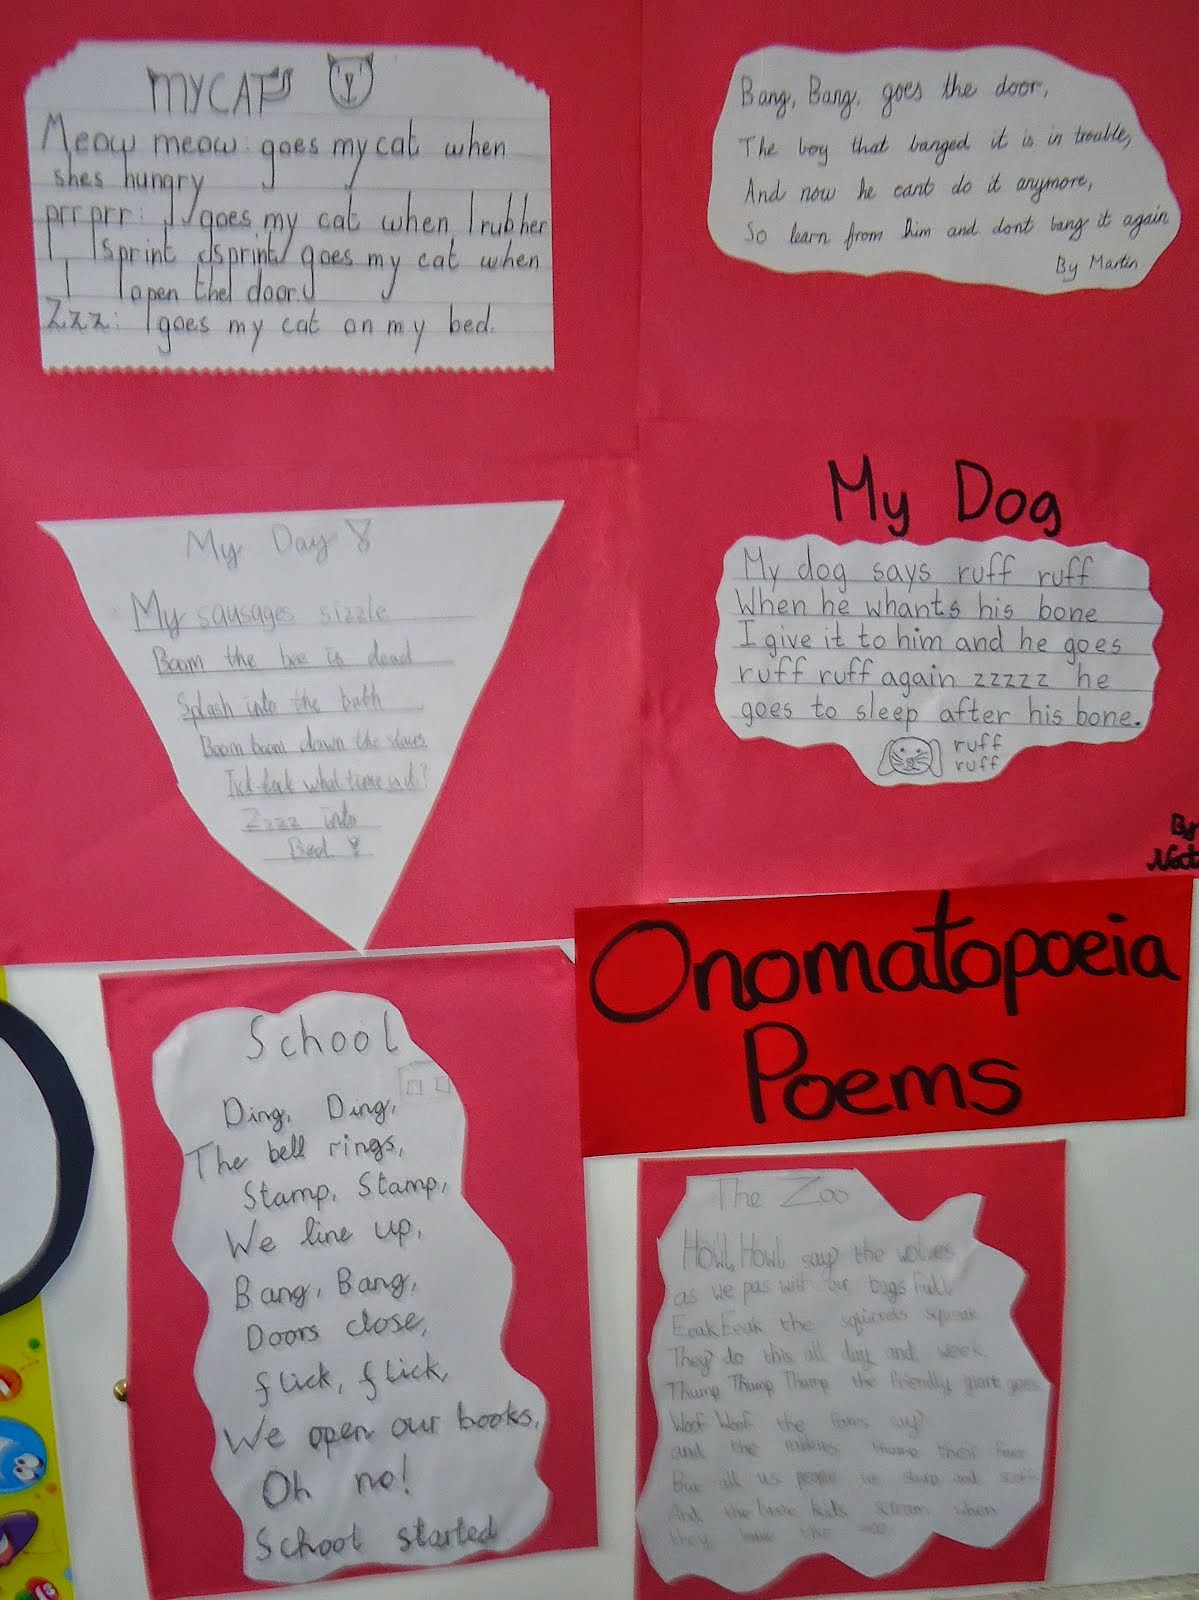 MY CATS
Meow meow: goes my cat when
shes hungry
prr prr: goes my cat when I rub her
sprint sprint goes my cat when
I open the door.
Zzz: goes my cat on my bed.
Bang, Bang, goes the door,
The boy that banged it is in trouble,
And now he cant do it anymore,
So learn from him and dont bang it again
By Martin
My Day
My sausages sizzle
Boom the bee is dead
Splash into the bath
Boom boom down the stairs
Tick-tock what time is it?
Zzzz into
Bed
My Dog
My dog says ruff ruff
When he whants his bone
I give it to him and he goes
ruff ruff again zzzzz he
goes to sleep after his bone.
ruff
ruff
By
Onomatopoeia
Poems
School
Ding, Ding,
The bell rings,
Stamp, Stamp,
We line up,
Bang, Bang,
Doors close,
flick, flick,
We open our books,
Oh no!
School started
The Zoo
Howl, Howl say the wolves
as we pas with our bags full
EeakEeak the squirrels squeak
They do this all day and week
Thump Thump Thump the friendly giant goes
Woof Woof the say
and the their
But all us people we and
And the kids scream when
they the